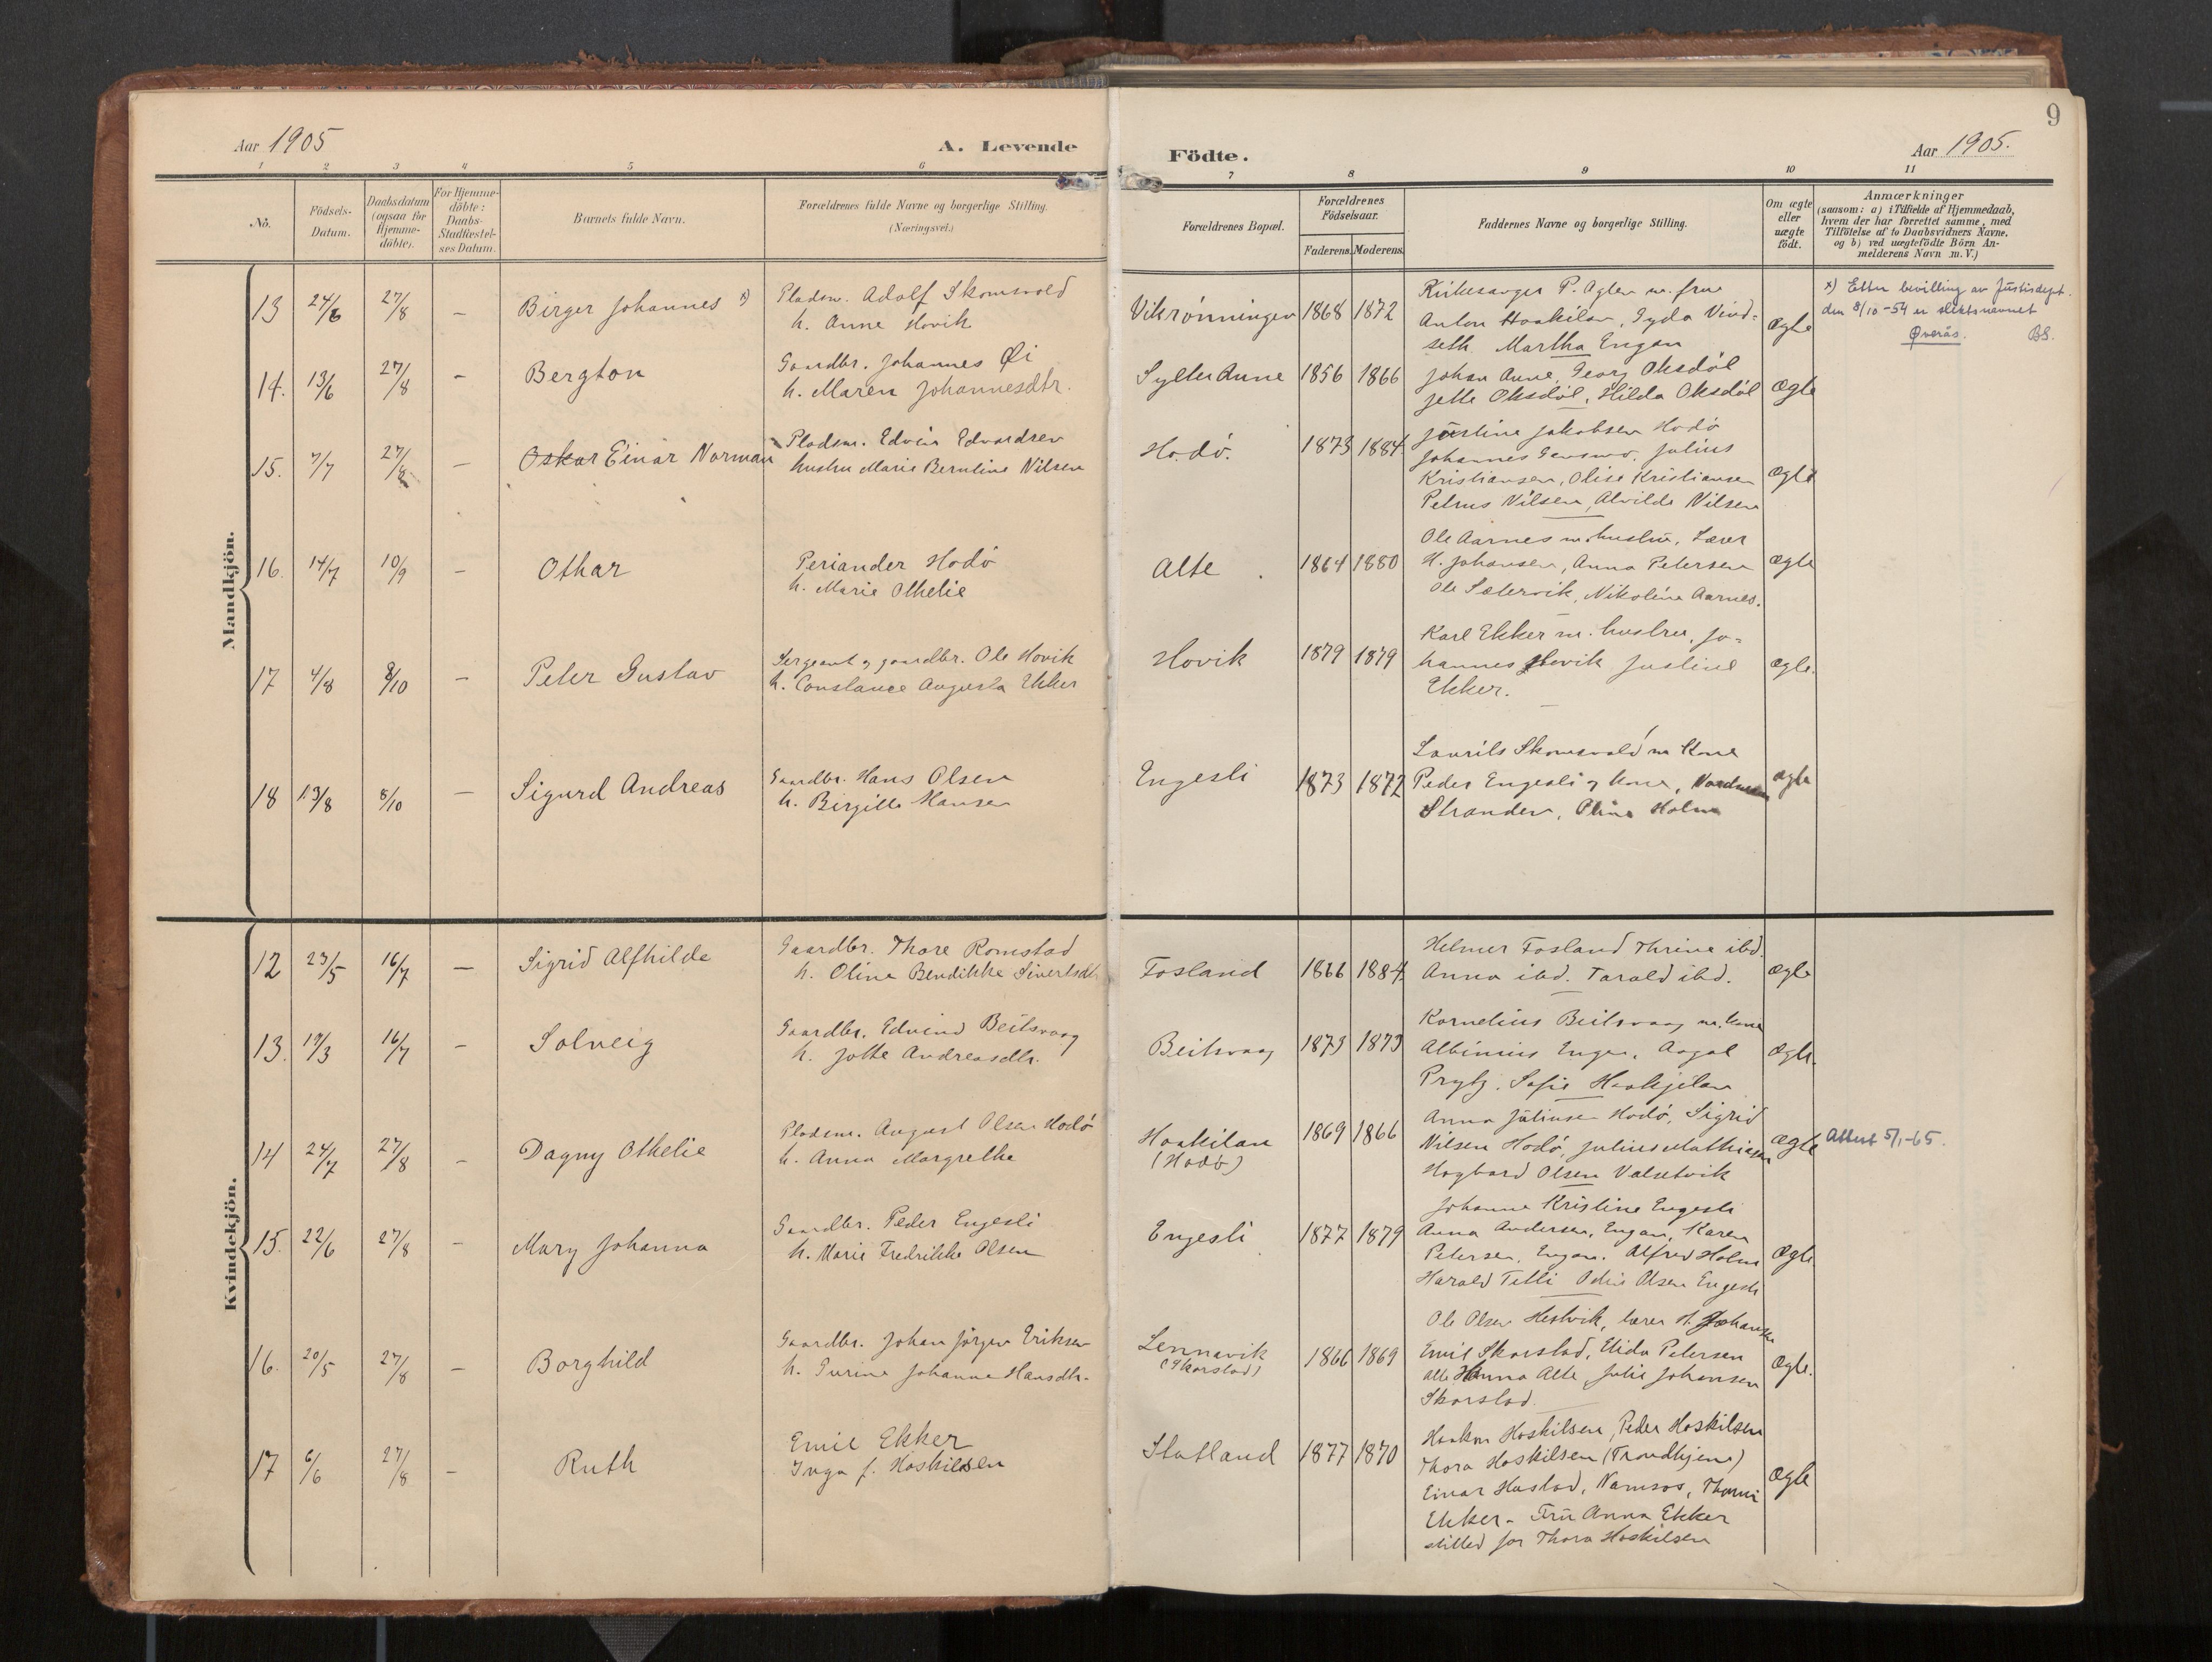 9
Aar 1905
A. Levende
Födte.
Aar 1905.
1 2 3 4 5 6 7 8 9 10 11
No.
Födsels-
Datum.
Daabsdatum
(ogsaa for
Hjemme-
döbte).
For Hjemme-
döbte:
Daabs-
Stadfæstel-
ses Datum.
Barnets fulde Navn.
Forældrenes fulde Navne og borgerlige Stilling.
(Næringsvei.)
Forældrenes Bopæl.
Forældrenes
Födselsaar.
Faderens. Moderens.
Faddernes Navne og borgerlige Stilling.
Om ægte
eller
uægte
födt.
Anmærkninger
(saasom: a) i Tilfælde af Hjemmedaab,
hvem der har forrettet samme, med
Tilföielse af to Daabsvidners Navne,
og b) ved uægtefödte Börn An-
melderens Navn m. V.)
Mandkjön.
13 24/6 27/8 – Birger Johannes x)
Pladsm. Adolf Skomsvold
h. Anne Hovik
Vikrønningen 1868 1872
Kirkesanger P. Agler m. frue
Anton Haakilan, Gyda Vind-
seth. Martha Engan
Ægte
x) Etter bevilling av Justisdept.
den 8/10-54 er slektsnavnet
Øverås. BS.
14. 13/6 27/8 – Bergton
Gaardbr. Johannes Øi
h. Maren Johannesdtr.
Sylter Aune 1856 1866
Johan Aune, Georg Oksdøl
Jette Oksdøl, Hilda Oksdøl
Ægte
15. 7/7 27/8 – Oskar Einar Norman
Pladsm. Edvin Edvardsen
hustru Marie Berntine Nilsen
Hodö. 1873 1884.
Justine Jakobsen Hodö
Johannes Julius
Kristiansen, Olise Kristiansen
Petrus Nilsen, Alvilde Nilsen
Ægte
16. 14/7 10/9 – Othar
Periander Hodö
h. Marie Othelie
Alte 1864 1880
Ole Aarnes m. hustru, Lærer
H. Johansen, Anna Petersen
Ole Sætervik, Nikoline Aarnes.
Ægte
17 4/8 8/10 – Peter Gustav
Sergeant og gaardbr. Ole Hovik
h. Constance Augusta Ekker
Hovik 1879 1879
Karl Ekker m. hustru, Jo-
hannes Hovik Justine
Ekker.
Ægte.
18 13/8 8/10 – Sigurd Andreas
Gaardbr. Hans Olsen
h. Birgitte Hansen
Engesli 1873 1872
Laurits Skomsvold m Kone
Peder Engesli og Kone,
Stranden, Oline Holm
Ægte
Kvindekjön.
12 23/5 16/7 – Sigrid Alfhilde
Gaardbr. Thore Romstad
h. Oline Bendikke Sivertsdtr
Fosland 1866 1884.
Helmer Fosland Thrine ibd.
Anna ibd. Tarald ibd.
Ægte
13. 19/3 16/7 – Solveig
Gaardbr. Edvind Beitsvaag
h. Jotte Andreasdtr.
Beitsvaag 1873 1873
Kornelius Beitsvaag m. kone
Albinius Engan, Aagot
Prytz, Sofie Haakjelan
Ægte.
14 24/7 27/8 – Dagny Othelie
Pladsm. August Olsen Hodö
h. Anna Margrethe
Haakilan
(Hodö) 1869 1866
Anna Juliusen Hodö, Sigrid
Nilsen Hodö, Julius Mathiesen
Hagbard Olsen Valsetvik
Ægte
Attest 5/1-65.
15. 22/6 27/8 – Mary Johanna
Gaardbr. Peder Engesli
h. Marie Fredrikke Olsen
Engesli 1877 1879
Johanna Kristine Engesli
Anna Andersen, Engan, Karen
Petersen, Engan. Alfred Holm
Harald Tetli Olsen Engesli
Ægte
16. 20/5 27/8 – Borghild
Gaardbr. Johan Jörgen Eriksen
h. Purine Johanna Hansdtr.
Lennavik
(Skorstad) 1866 1869
Ole Olsen Hestvik, lærer H. Johansen
Emil Skorstad, Elida Petersen
Alte Anna Alte, Julie Johansen
Skorstad.
Ægte.
17 6/6 27/8 – Ruth
Emil Ekker
Inga f. Haskilsen
Statland 1877 1870
Haakon Haskilsen, Peder Haskilsen
Thora Haskilsen (Trondhjem)
Einar Hustad, Namsos, Thomi
Ekker – Fru Anna Ekker
stilled for Thora Haskilsen
Ægte